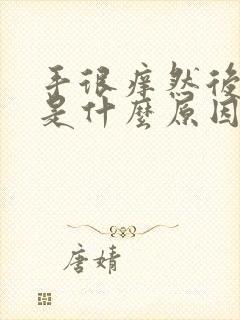 手很痒然後
是什麼原因
唐婧